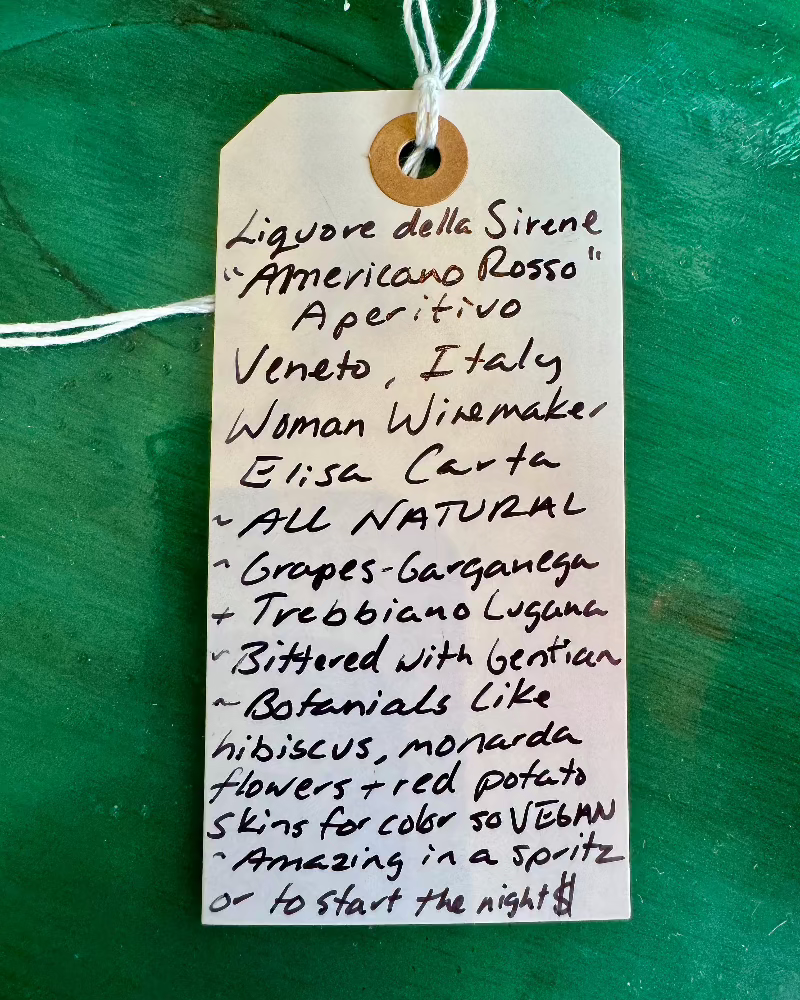 Liquore della Sirene
"Americano Rosso"
Aperitivo
Veneto, Italy
Woman Winemaker
Elisa Carta
~ ALL NATURAL
~ Grapes-Garganega
+ Trebbiano Lugana
~ Bittered with Gentian
~ Botanials like
hibiscus, monarda
flowers + red potato
skins for color so VEGAN
~ Amazing in a spritz
or to start the night $